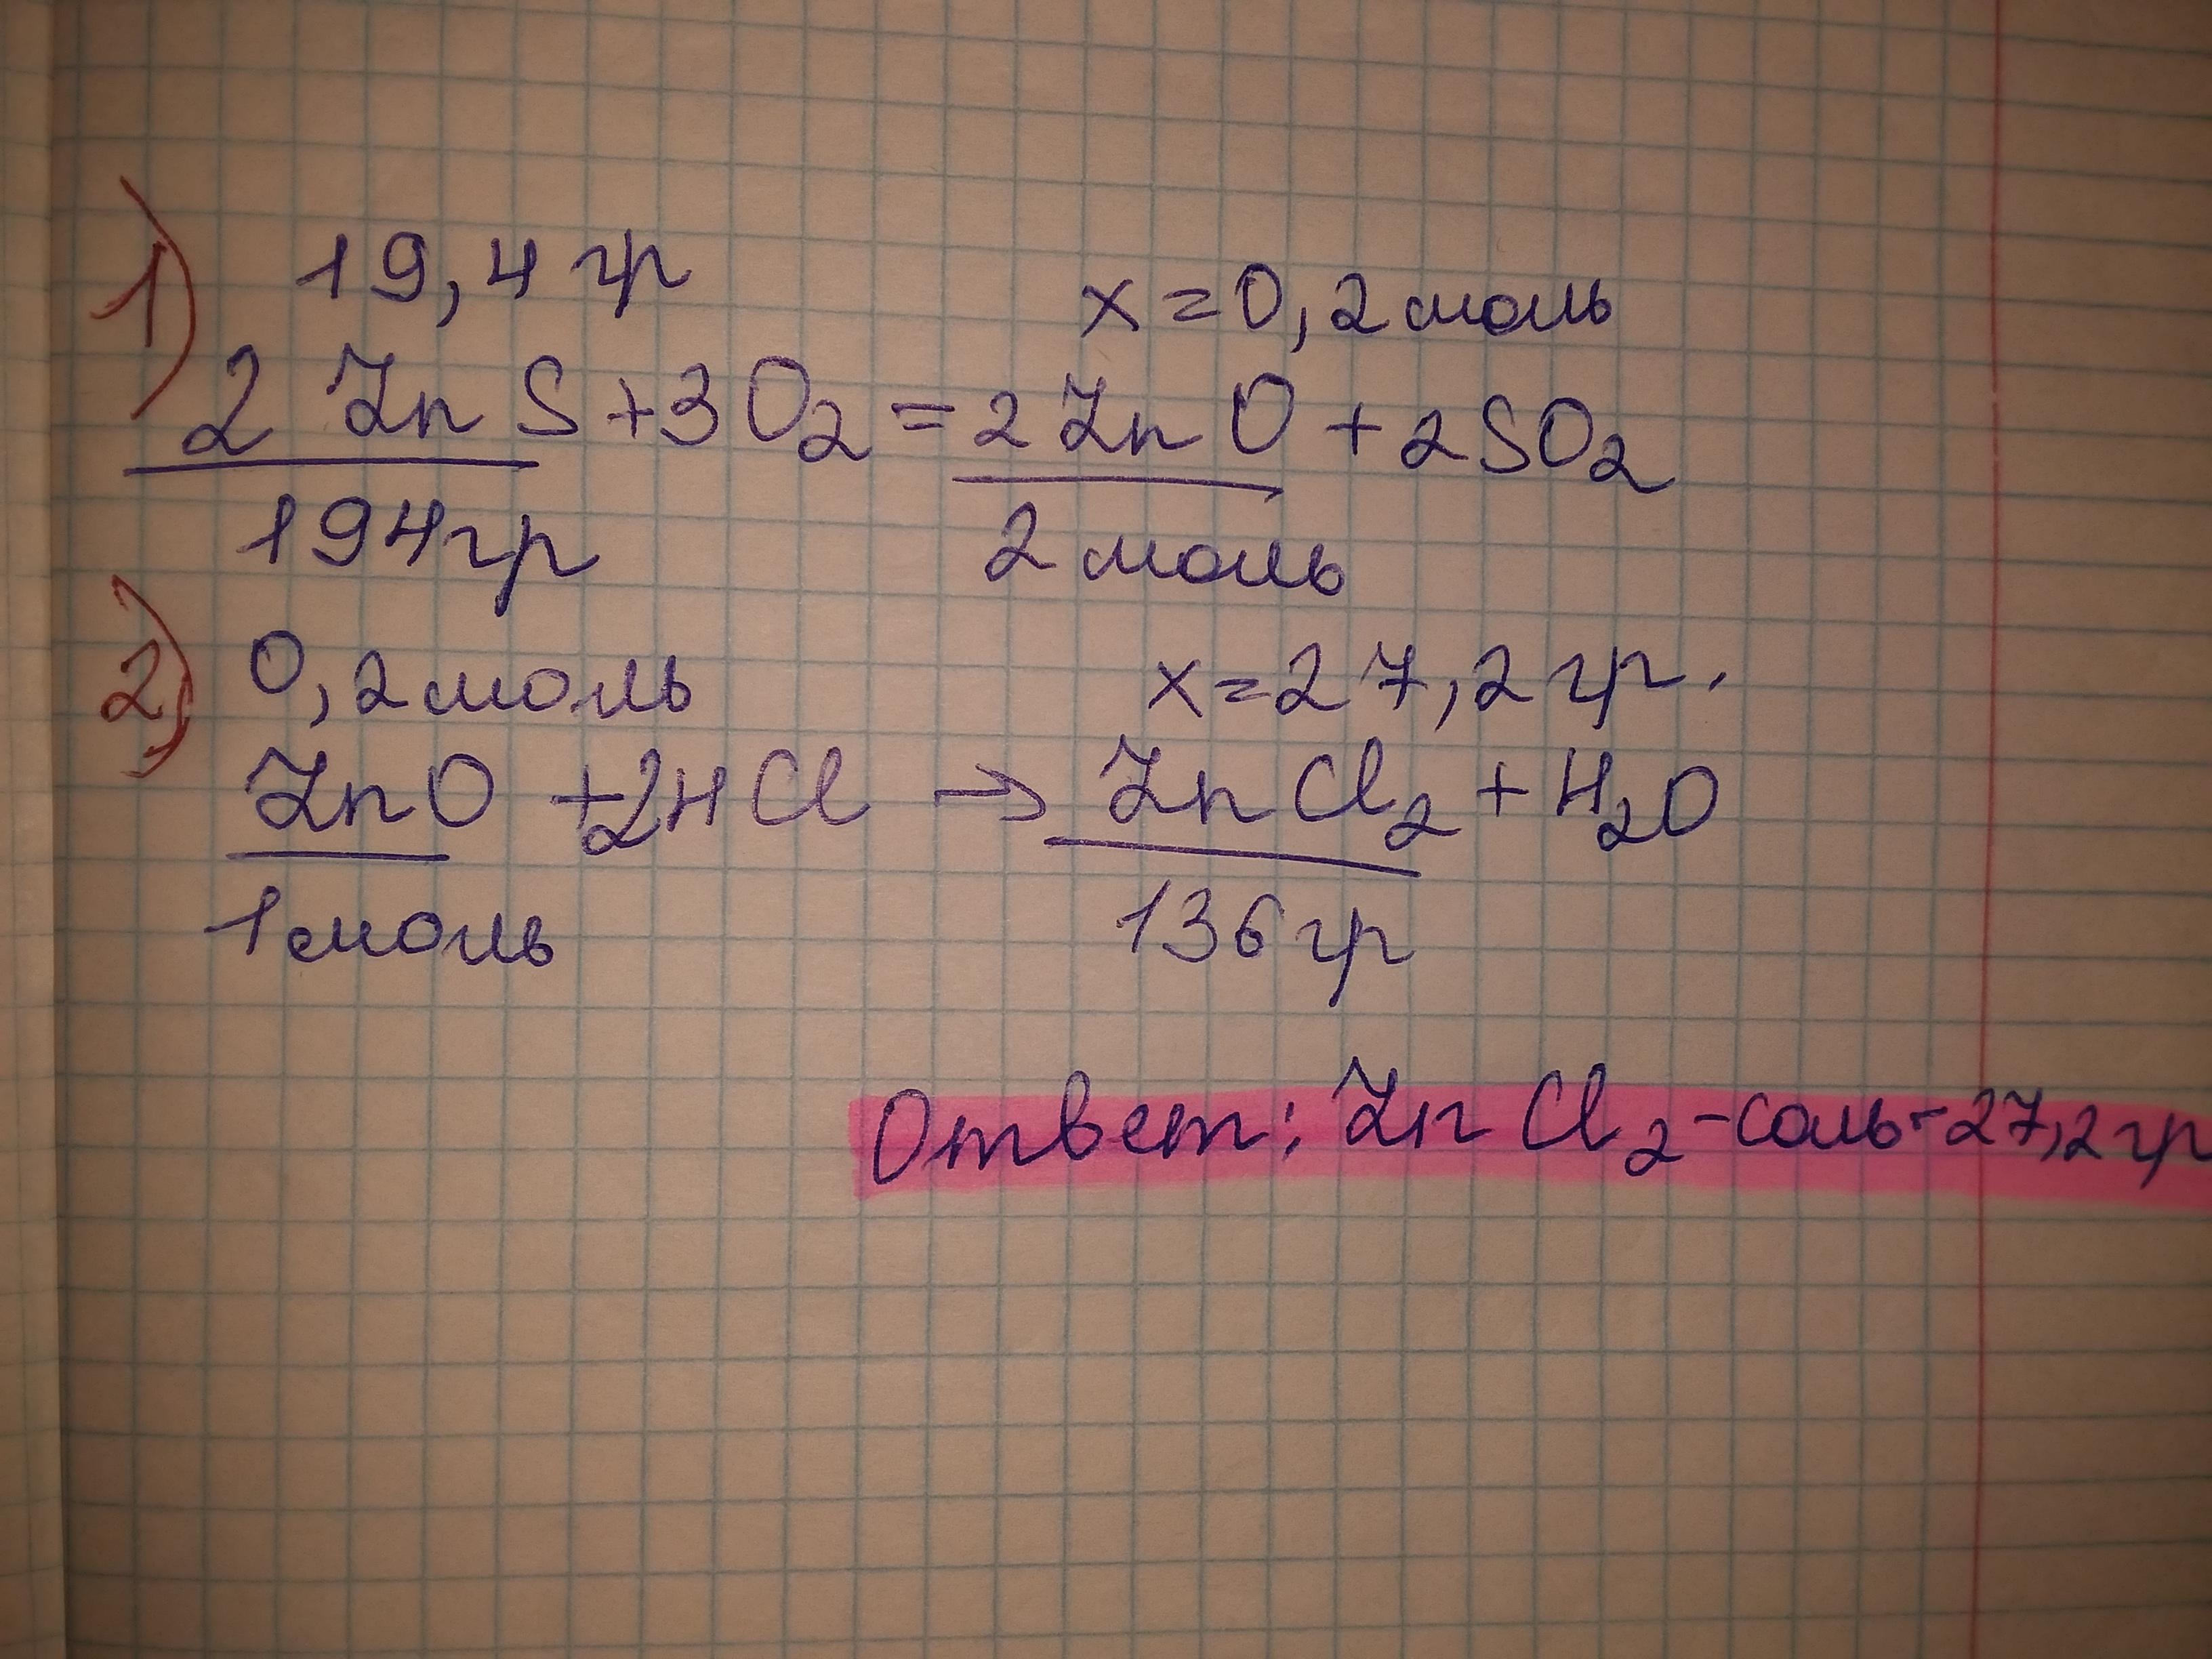 1) 19,4 гр x=0,2 моль
2 ZnS+3O₂=2 ZnO+2SO₂
194гр 2 моль
2) 0,2 моль x=27,2 гр.
ZnO +2HCl → ZnCl₂+H₂O
1 моль 136 гр
Ответ: ZnCl₂-соль-27,2 гр